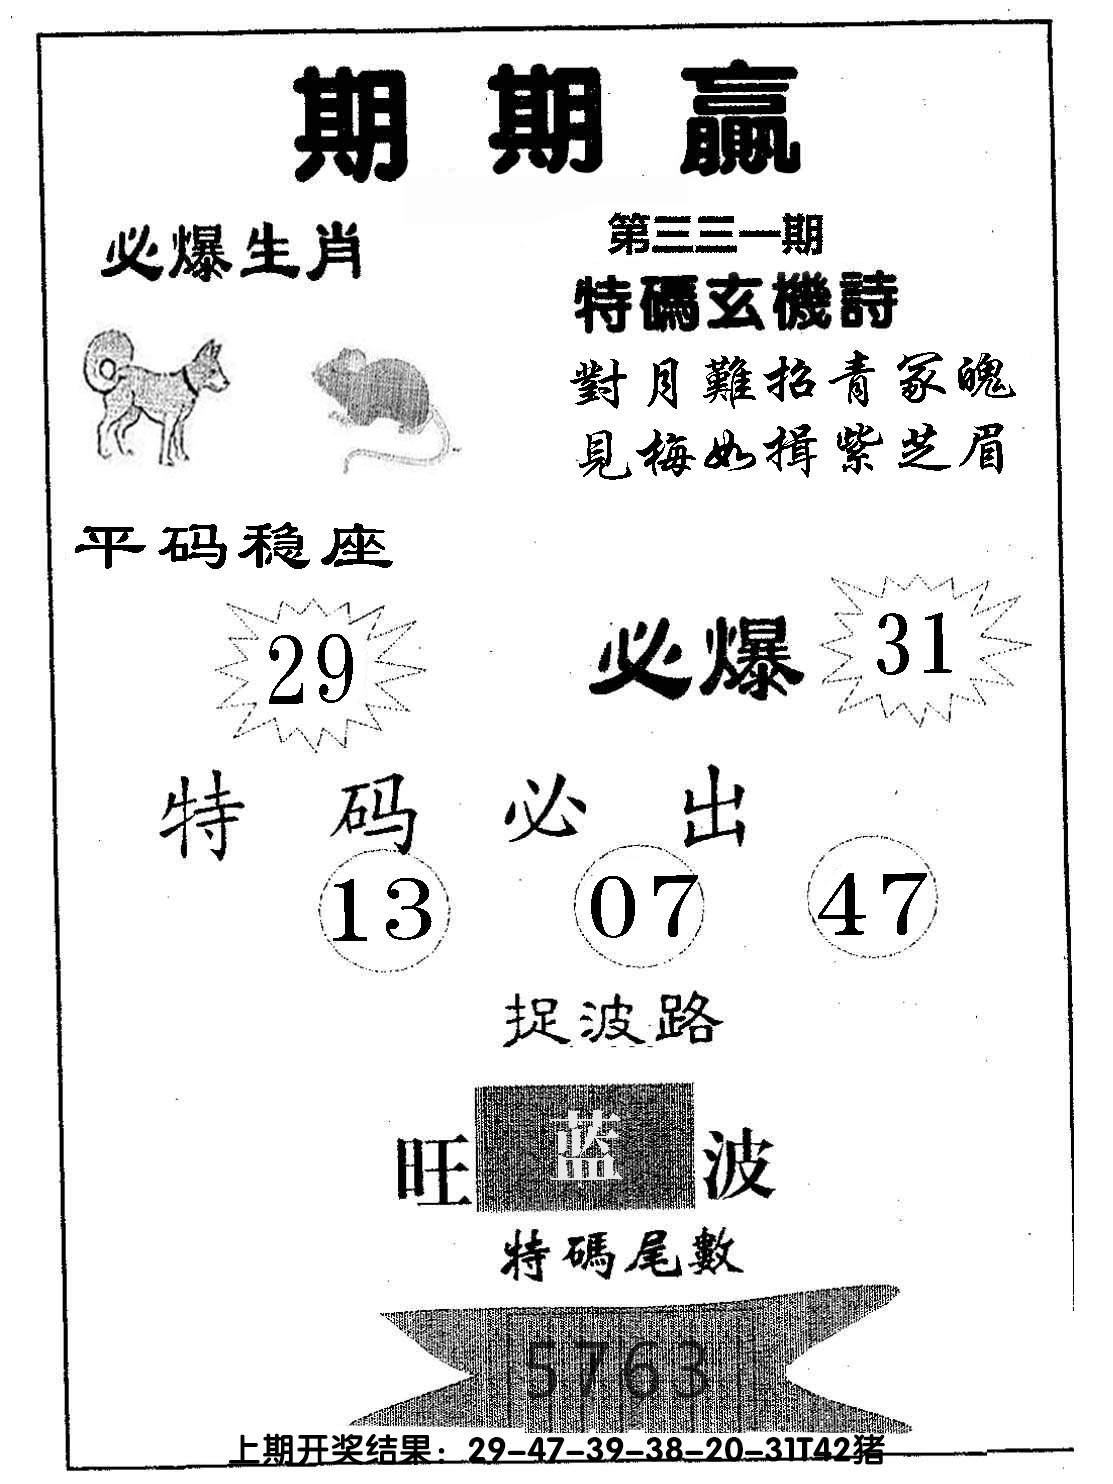 期期赢
必爆生肖
第三三一期
特碼玄機詩
對月難招青冢魄
見梅如揖紫芝眉
平码稳座
29
必爆
31
特码必出
13 07 47
捉波路
旺蓝波
特碼尾數
5763
上期开奖结果：29-47-39-38-20-31T42猪